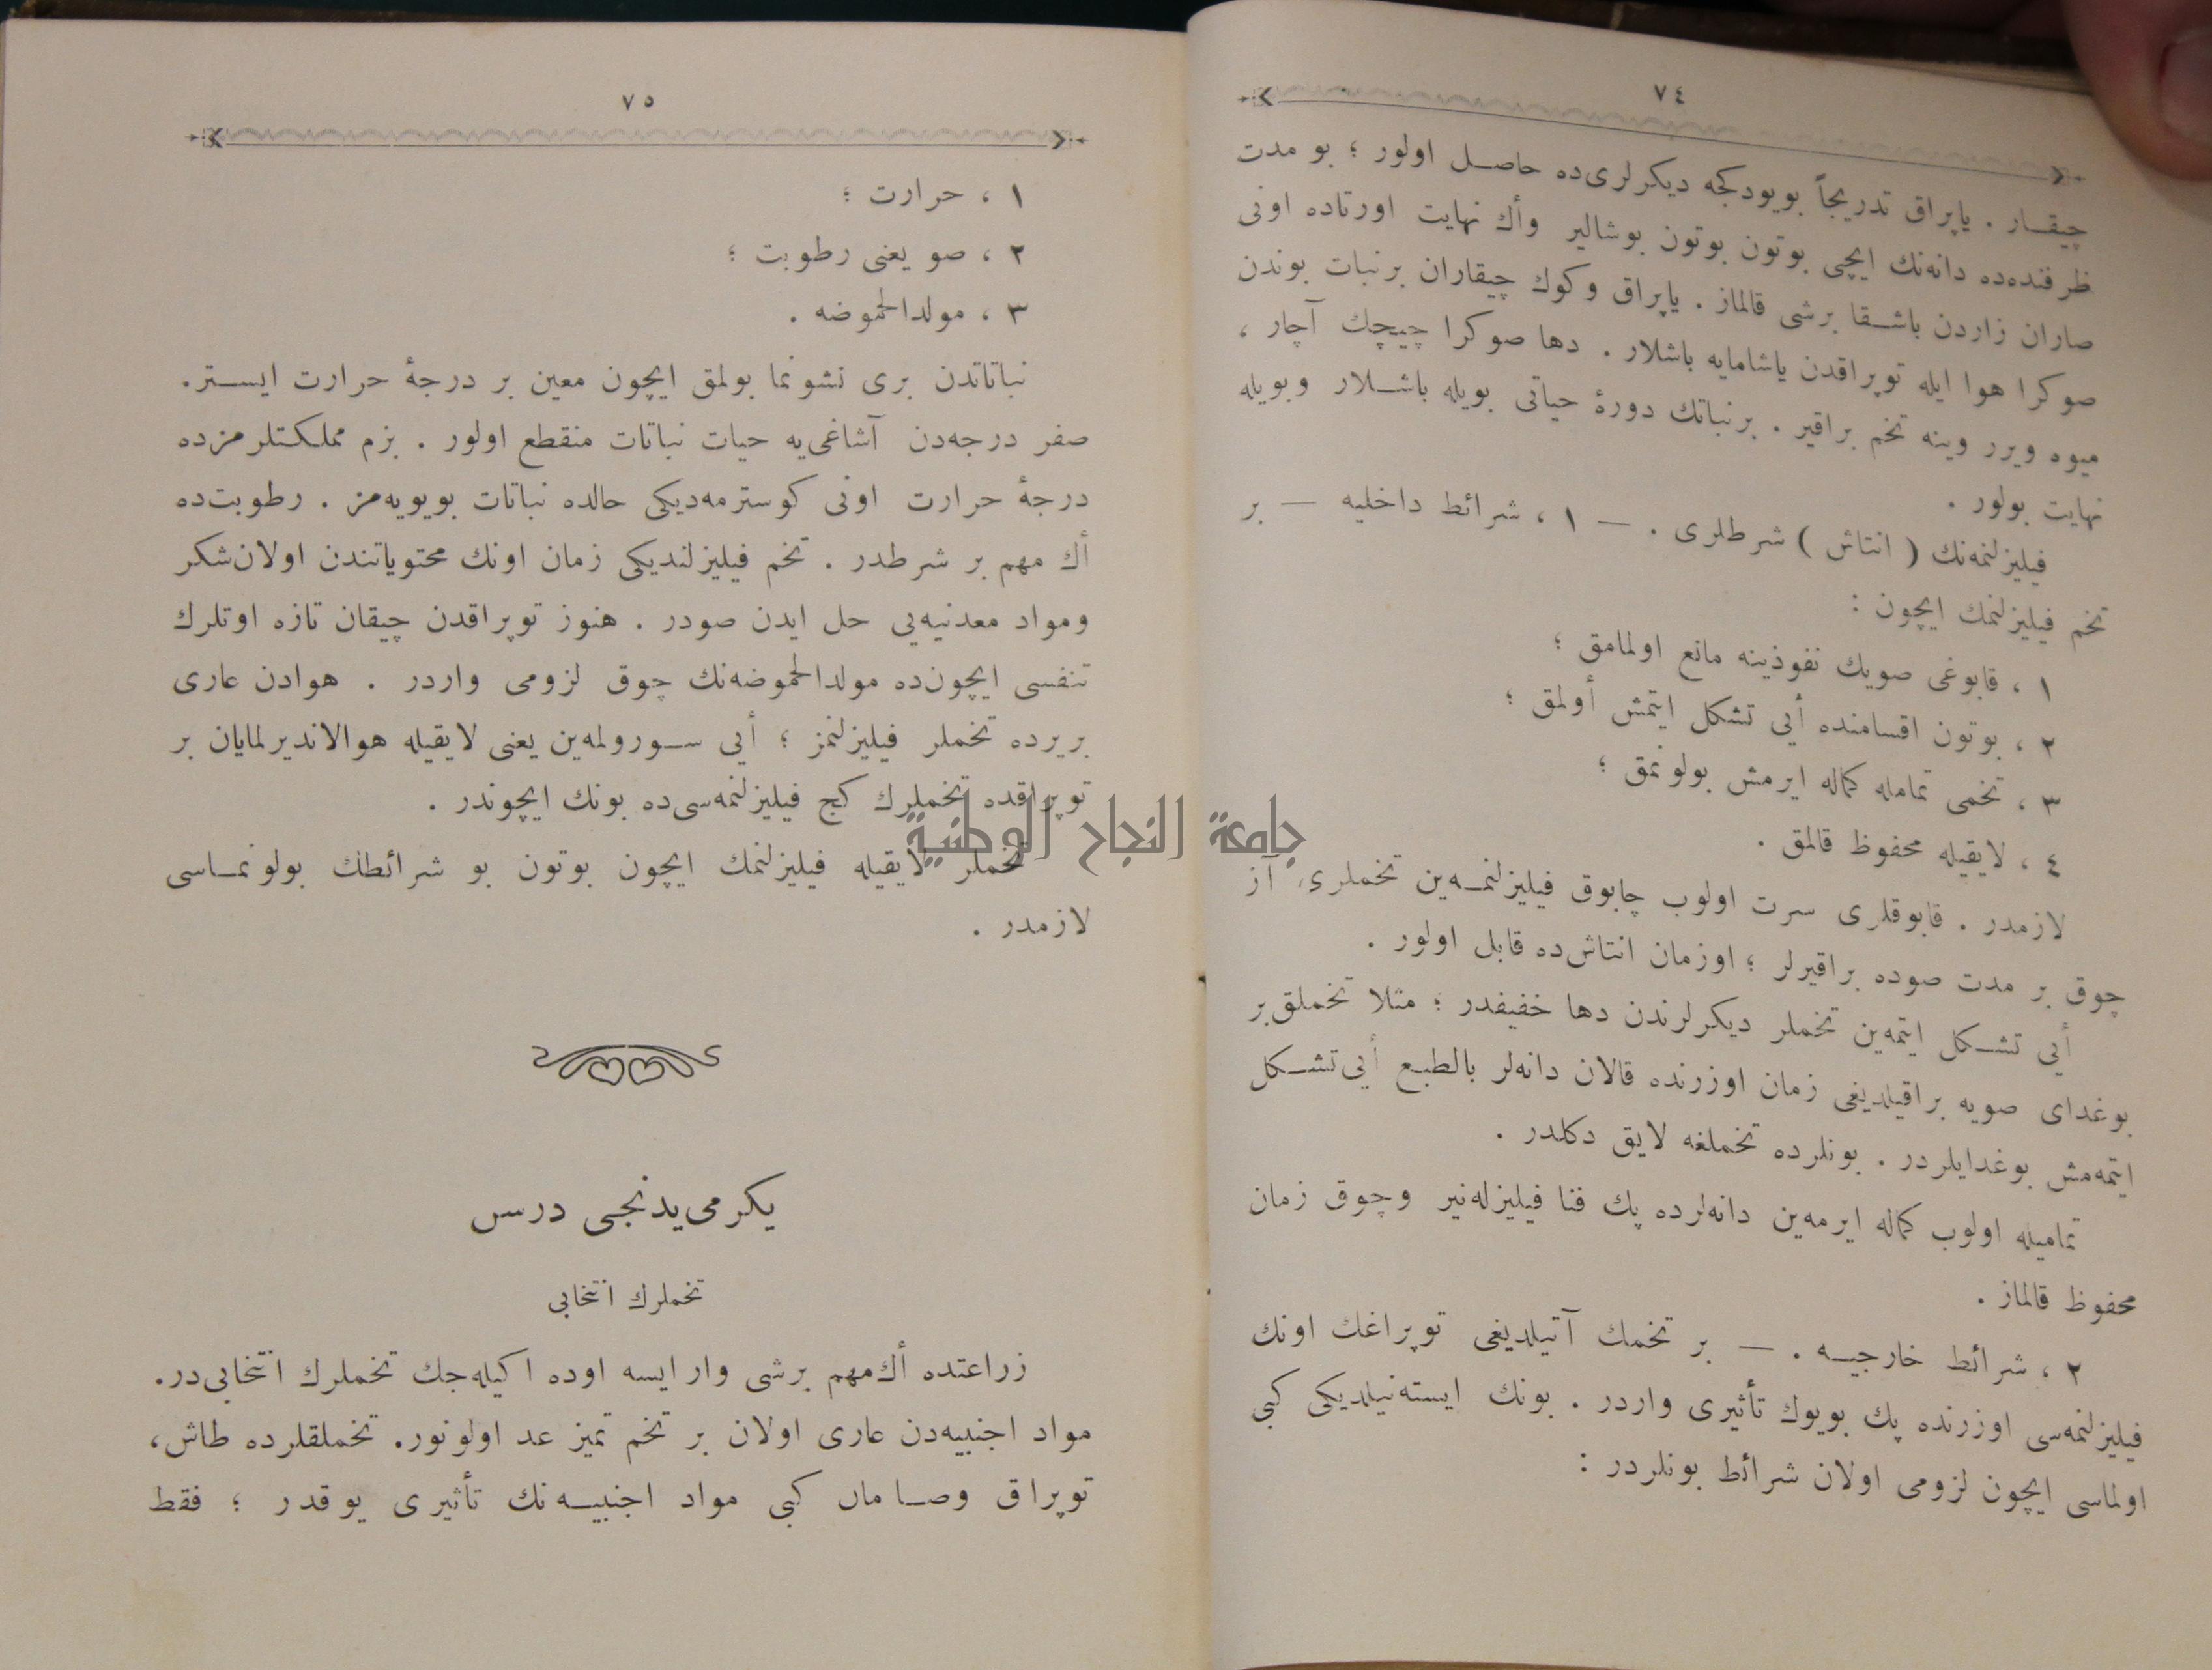 ٧٤
چیقـار . یاپراق تدریجاً بویودكجه دیكرلری‌ده حاصـل اولور ؛ بو مدت
ظرفنده‌ده دانه‌نك ایچی بوتون بوتون بوشالیر وأك نهایت اورتاده اونی
صاران زاردن باشـقا برشی قالماز . یاپراق وكوك چیقاران برنبات بوندن
صوكرا هوا ایله توپراقدن یاشامایه باشلار . دها صوكرا چیچك آچار ،
میوه ویرر وینه تخم براقیر . برنباتك دورهٔ حیاتی بویله باشـلار وبویله
نهایت بولور .
فیلیزلنمه‌نك ( انتاش ) شرطلری . — ١ ، شرائط داخلیه — بر
تخم فیلیزلنمك ایچون :
١ ، قابوغی صویك نفوذینه مانع اولمامق ؛
٢ ، بوتون اقسامنده أیی تشكل ایتمش أولمق ؛
٣ ، تخمی تمامله كماله ایرمش بولونمق ؛
٤ ، لایقیله محفوظ قالمق .
لازمدر . قابوقلری سرت اولوب چابوق فیلیزلنمـه‌ین تخملری، آز
چوق بر مدت صوده براقیرلر ؛ اوزمان انتاش‌ده قابل اولور .
أیی تشـكل ایتمه‌ین تخملر دیكرلرندن دها خفیفدر ؛ مثلا تخملق بر
بوغدای صویه براقیلدیغی زمان اوزرنده قالان دانه‌لر بالطبـع أیی تشـكل
ایتمه‌مش بوغدایلردر . بونلرده تخملغه لایق دكلدر .
تمامیله اولوب كماله ایرمه‌ین دانه‌لرده پك فنا فیلیزله‌نیر وچوق زمان
محفوظ قالماز .
٢ ، شرائط خارجیـه . — بر تخمك آتیلدیغی توپراغك اونك
فیلیزلنمه‌سی اوزرنده پك بویوك تأثیری واردر . بونك ایسته‌نیلدیكی كبی
اولماسی ایچون لزومی اولان شرائط بونلردر :
٧٥
١ ، حرارت ؛
٢ ، صو یعنی رطوبت ؛
٣ ، مولدالحموضه .
نباتاتدن بری نشونما بولمق ایچون معین بر درجهٔ حرارت ایسـتر.
صفر درجه‌دن آشاغی‌یه حیات نباتات منقطع اولور . بزم مملكتلرمزده
درجهٔ حرارت اونی كوسترمه‌دیكی حالده نباتات بویویه‌مز . رطوبت‌ده
أك مهم بر شرطدر . تخم فیلیزلندیكی زمان اونك محتویاتندن اولان‌شكر
ومواد معدنیه‌یی حل ایدن صودر . هنوز توپراقدن چیقان تازه اوتلرك
تنفسی ایچون‌ده مولدالحموضه‌نك چوق لزومی واردر . هوادن عاری
بریرده تخملر فیلیزلنمز ؛ أیی سـورولمه‌ین یعنی لایقیله هوالاندیرلمایان بر
توپراقده تخملرك كج فیلیزلنمه‌سی‌ده بونك ایچوندر .
تخملر لایقیله فیلیزلنمك ایچون بوتون بو شرائطك بولونمـاسی
لازمدر .
یكرمی‌یدنجی درس
تخملرك انتخابی
زراعتده أك‌مهم برشی وار ایسه اوده اكیله‌جك تخملرك انتخابی‌در.
مواد اجنبیه‌دن عاری اولان بر تخم تمیز عد اولونور. تخملقلرده طاش،
توپراق وصـامان كبی مواد اجنبیـه‌نك تأثیری یوقدر ؛ فقط
جامعة النجاح الوطنية